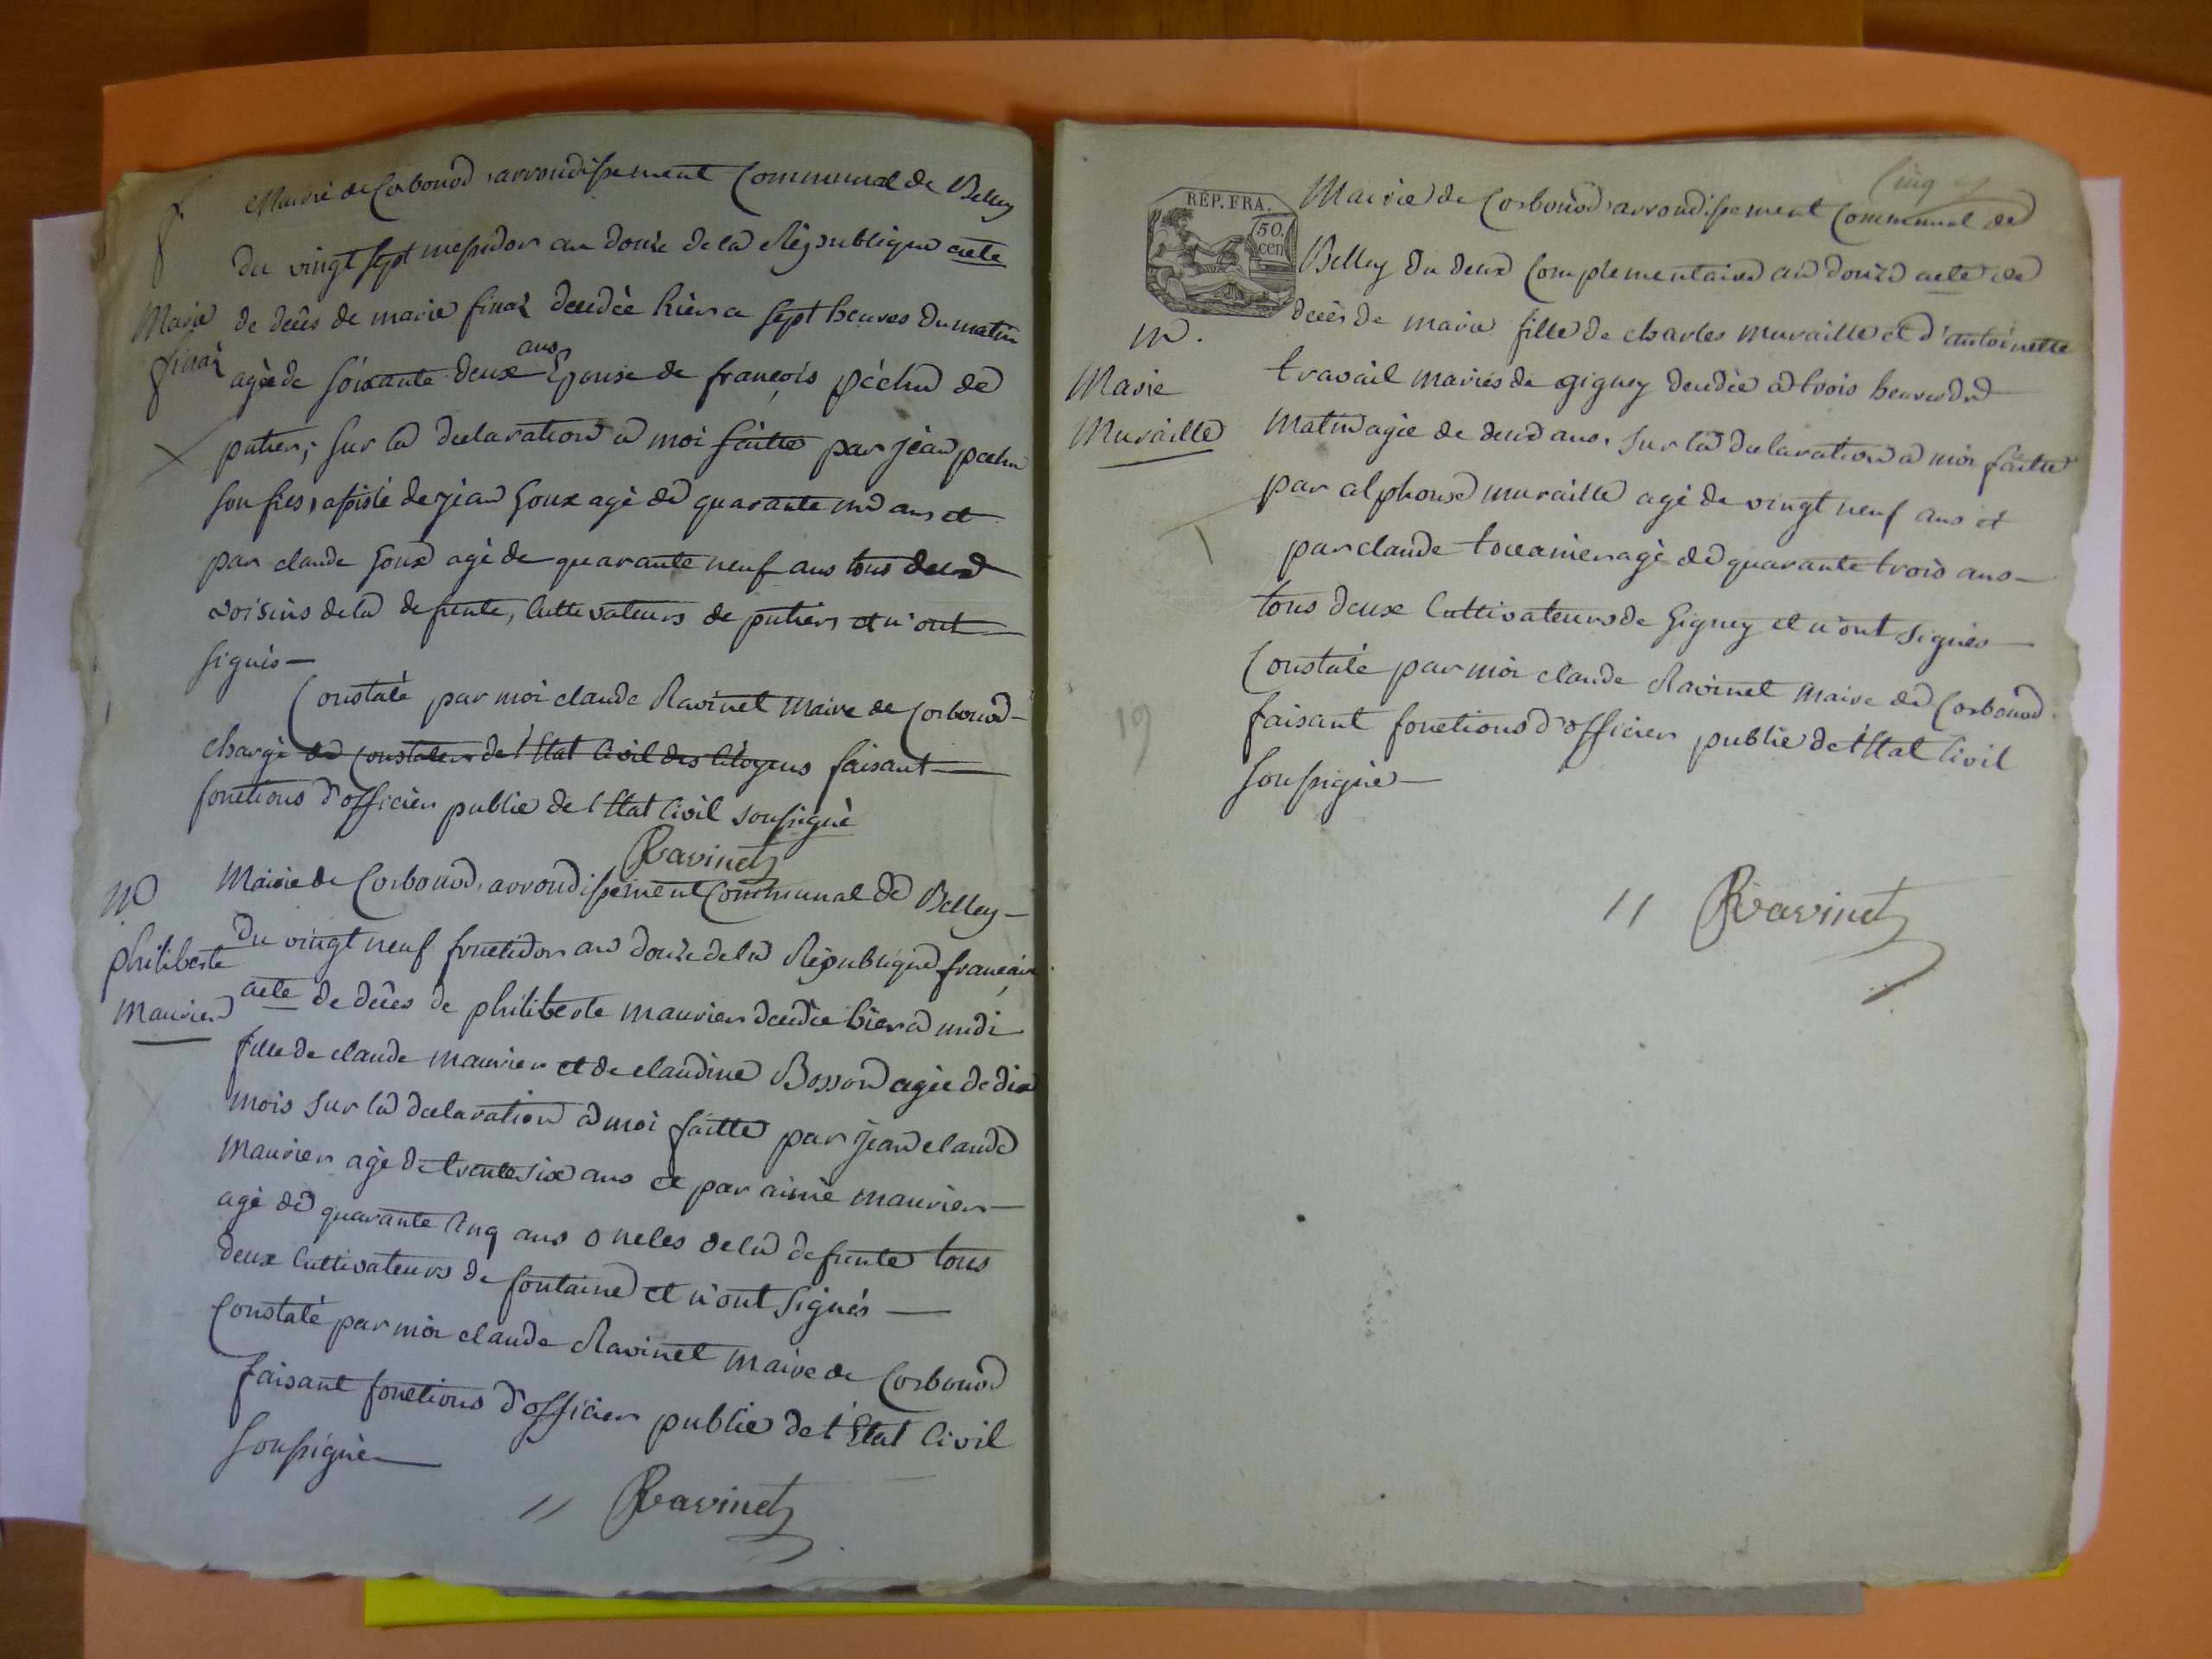 f
Mairie de Corbonod, arrondissement Communal de Belley
du vingt sept messidor an douze de la République acte
de decès de marie finaz decedèe hièr a sept heures du matin
Marie
finaz
agèe de soixante deux ans Epouse de françois péchu de
putier, sur la declaration a moi faitte par jean pechu
son fils, assisté de jean goux agè de quarante un ans et
par claude goux agè de quarante neuf ans tous deux
voisins de la defunte, Cultivateurs de putier et n'ont
signés —
Constaté par moi claude Ravinet Maire de Corbonod
chargé de Constater de l'Etat Civil des Citoyens faisant
fonctions d'officier public de l'Etat Civil soussigné
Ravinet
m
philiberte
Maurier
Mairie de Corbonod, arrondissement Communal de Belley —
du vingt neuf fructidor an douze de la République française
acte de decès de philiberte maurier decedèe hier a midi
fille de claude maurier et de claudine Bosson agèe de dix
mois sur la declaration a moi faitte par jean claude
Maurier agè de trente six ans et par aimé maurier —
agè de quarante cinq ans oncles de la defunte tous
deux Cultivateurs de fontaine et n'ont signés —
Constaté par moi claude Ravinet Maire de Corbonod
faisant fonctions d'officier public de l'Etat Civil
soussigné —
// Ravinet
Cinq
RÉP. FRA.
50.
cen
Mairie de Corbonod, arrondissement Communal de
Belley du deux Complementaire an douze acte de
decès de marie fille de charles muraille et d'antoinette
m.
Marie
Muraille
travail mariés de gigney decedèe a trois heures du
Matin agèe de deux ans, sur la declaration a moi faitte
par alphonse muraille agè de vingt neuf ans et
par claude toccanier agè de quarante trois ans —
tous deux Cultivateurs de Gigney et n'ont signés —
Constaté par moi claude Ravinet Maire de Corbonod
faisant fonctions d'officier public de l'Etat Civil
soussigné —
19
// Ravinet